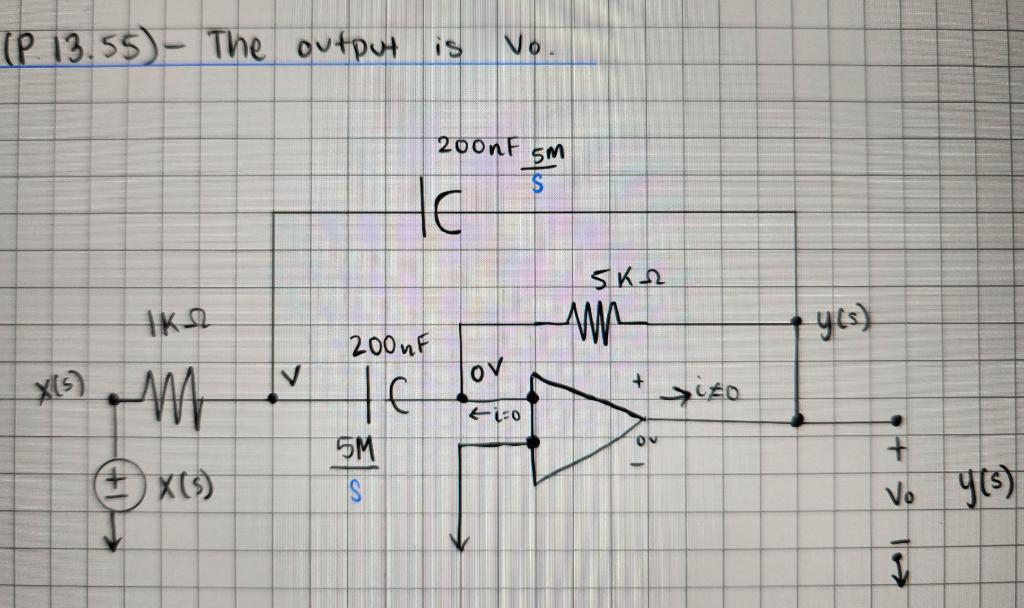 (P 13.55)- The output is Vo.
200nF 5M
S
5KΩ
1KΩ
y(s)
200nF
V
0V
+
→i≠0
x(s)
←i=0
5M
S
0v
−
+
−
X(s)
+
Vo
−
y(s)